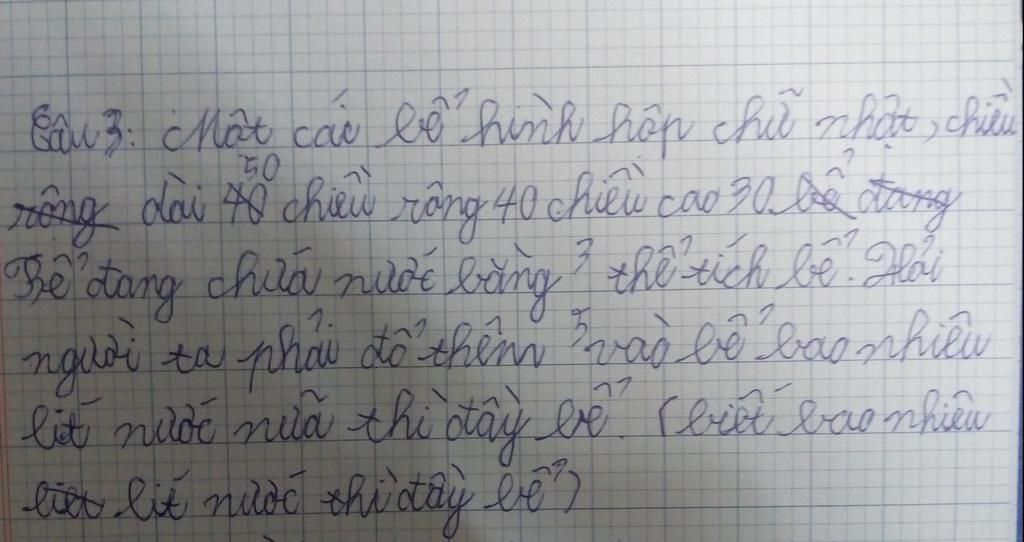 Câu 3: Một cái bể hình hộp chữ nhật, chiều
rộng dài 50 40 chiều rộng 40 chiều cao 30 bể đang
Bể đang chứa nước bằng 3 thể tích bể. Hỏi
người ta phải đổ thêm 5 vào bể bao nhiêu
lít nước nữa thì đầy bể? (biết bao nhiêu
lít nước thì đầy bể?)